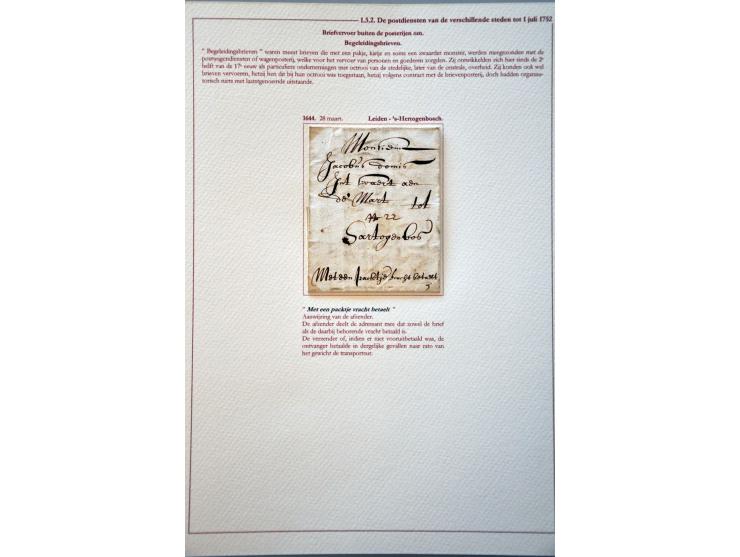 1.5.2. De postdiensten van de verschillende steden tot 1 juli 1752
Briefvervoer buiten de posterijen om.
Begeleidingsbrieven.
" Begeleidingsbrieven " waren meest brieven die met een pakje, kistje en soms een zwaarder monster, werden meegezonden met de
postwagendiensten of wagenposterij, welke voor het vervoer van personen en goederen zorgden. Zij ontwikkelden zich hier sinds de 2e
helft van de 17e eeuw als particuliere ondernemingen met octrooi van de stedelijke, later van de centrale, overheid. Zij konden ook wel
brieven vervoeren, hetzij hen dit bij hun octrooi was toegestaan, hetzij volgens contract met de brievenposterij, doch hadden organisa-
torisch niets met laatstgenoemde uitstaande.
1644. 28 maart. Leiden - 's-Hertogenbosch.
Monsieur
Jacobus
Int aen
de Mart tot
22
Sartogenbos
Met een packtje vracht betaelt
" Met een packtje vracht betaelt "
Aanwijzing van de afzender.
De afzender deelt de adressant mee dat zowel de brief
als de daarbij behorende vracht betaald is.
De verzender of, indien er niet vooruitbetaald was, de
ontvanger betaalde in dergelijke gevallen naar rato van
het gewicht de transporteur.